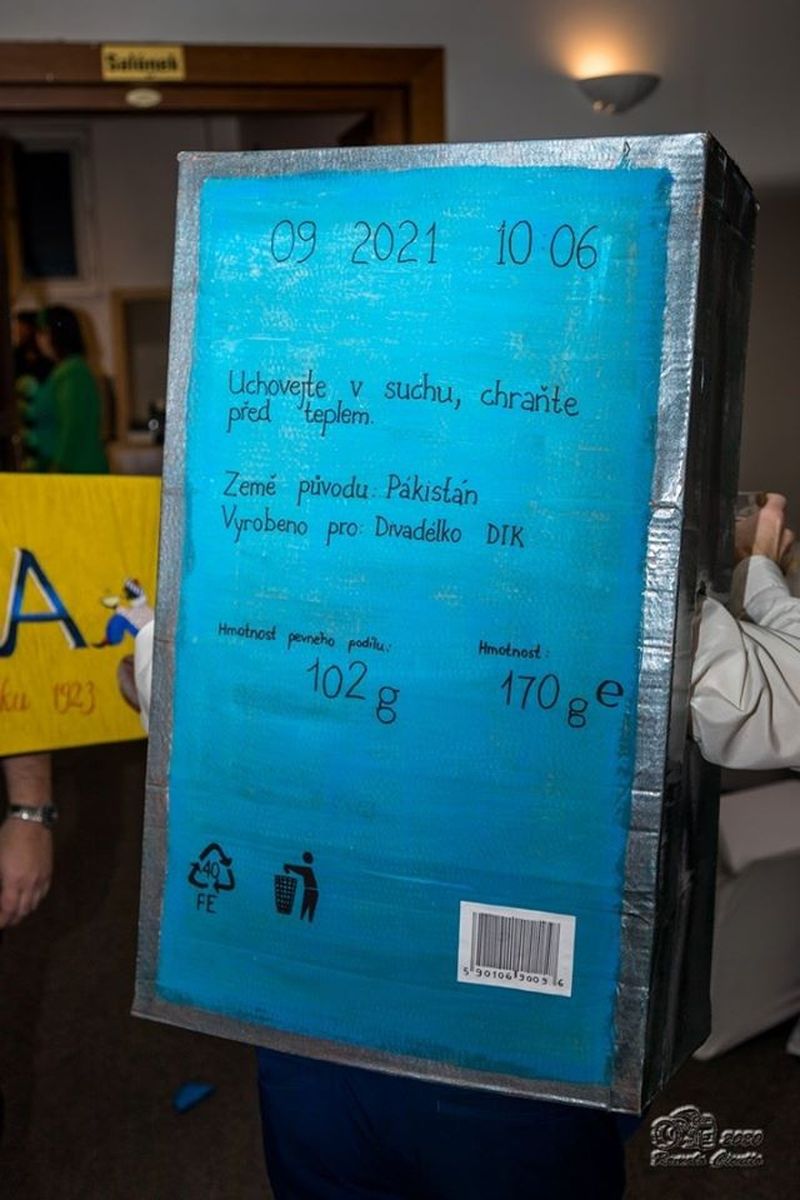 Salónek
09 2021 10:06
Uchovejte v suchu, chraňte
před teplem.
Země původu: Pákistán
Vyrobeno pro: Divadélko DIK
Hmotnost pevného podílu:
102 g
Hmotnost:
170 g e
A
ku 1923
40
FE
5 90106 9009 6
2020